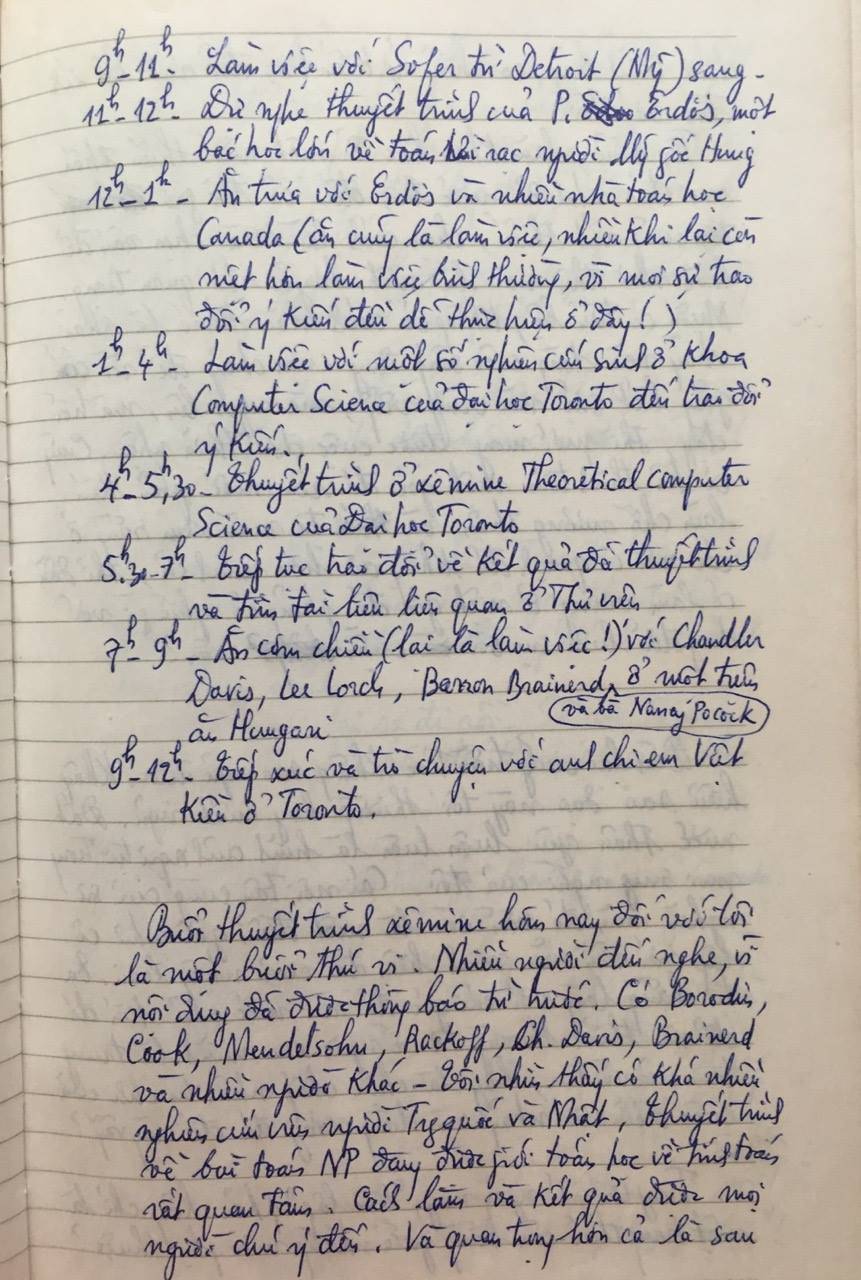 9h - 11h - Làm việc với Sofer từ Detroit (Mỹ) sang -
11h - 12h - Dự nghe thuyết trình của P. Erdös, một
bác học lớn về toán rời rạc người Mỹ gốc Hung
12h - 1h - Ăn trưa với Erdös và nhiều nhà toán học
Canada (ăn cũng là làm việc, nhiều khi lại còn
mệt hơn làm việc bình thường, vì mọi sự trao
đổi ý kiến đều dễ thực hiện ở đây!)
1h - 4h - Làm việc với một số nghiên cứu sinh ở Khoa
Computer Science của Đại học Toronto đến trao đổi
ý kiến.
4h - 5h,30 - Thuyết trình ở xêmine Theoretical Computer
Science của Đại học Toronto
5h.30 - 7h - Tiếp tục trao đổi về kết quả đã thuyết trình
và tìm tài liệu liên quan ở Thư viện
7h - 9h - Ăn cơm chiều (lại là làm việc!) với Chandler
Davis, Lee Lorch, Barron Brainerd, ở một tiệm
và bà Nancy Pocock
ăn Hungari
9h - 12h - Tiếp xúc và trò chuyện với anh chị em Việt
Kiều ở Toronto.
Buổi thuyết trình xêmine hôm nay đối với tôi
là một buổi thú vị. Nhiều người đến nghe, vì
nội dung đã được thông báo từ trước. Có Borodin,
Cook, Mendelsohn, Rackoff, Ch. Davis, Brainerd
và nhiều người khác - Tôi nhìn thấy có khá nhiều
nghiên cứu viên người Tg quốc và Nhật, Thuyết trình
về bài toán NP đang được giới toán học về tính toán
rất quan tâm. Cách làm và kết quả được mọi
người chú ý đến. Và quan trọng hơn cả là sau